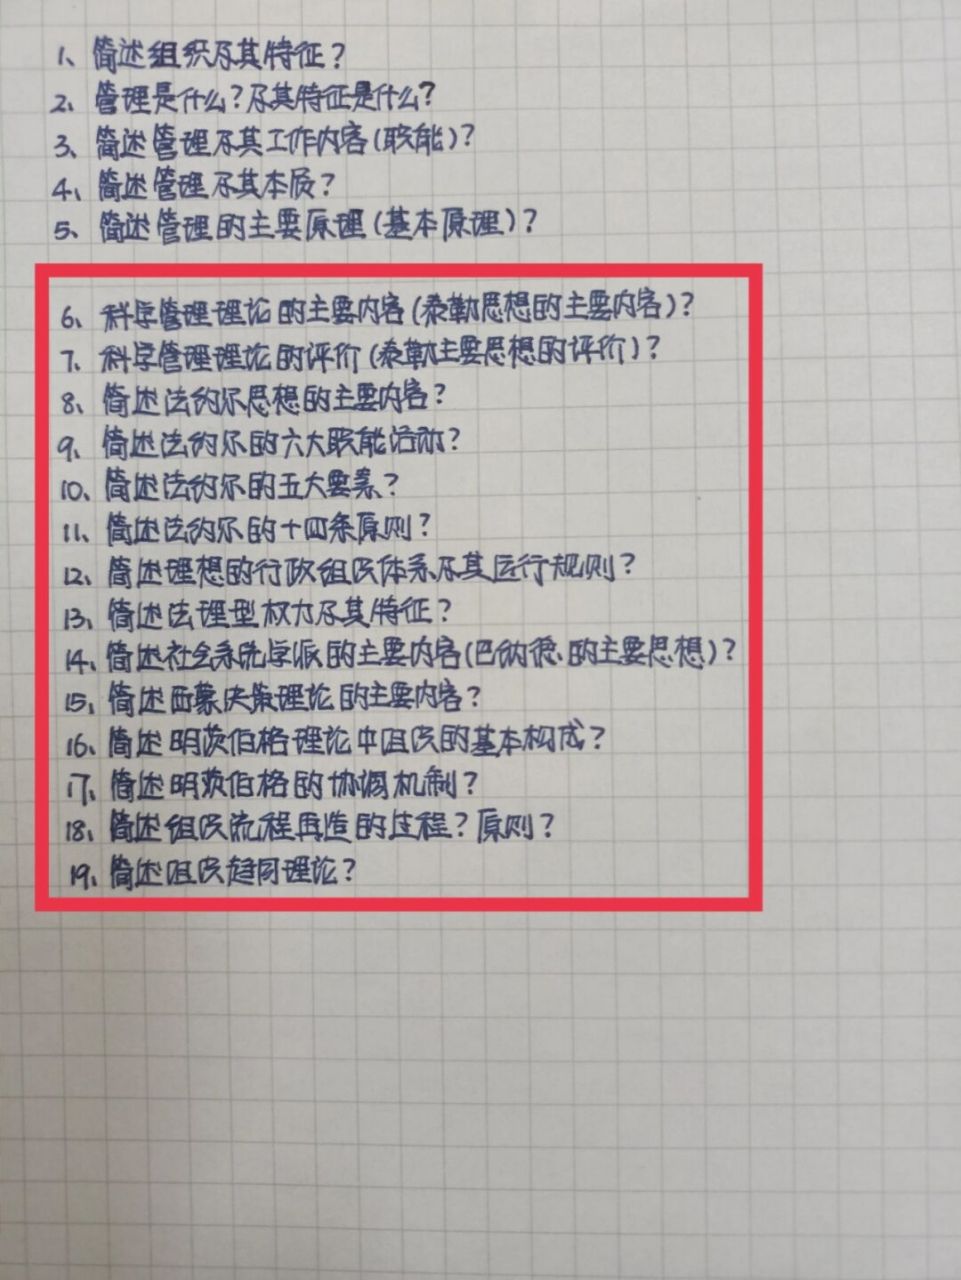 1、简述组织及其特征？
2、管理是什么？及其特征是什么？
3、简述管理及其工作内容(职能)？
4、简述管理及其本质？
5、简述管理的主要原理(基本原理)？
6、科学管理理论的主要内容(泰勒思想的主要内容)？
7、科学管理理论的评价(泰勒主要思想的评价)？
8、简述法约尔思想的主要内容？
9、简述法约尔的六大职能活动？
10、简述法约尔的五大要素？
11、简述法约尔的十四条原则？
12、简述理想的行政组织体系及其运行规则？
13、简述法理型权力及其特征？
14、简述社会系统学派的主要内容(巴纳德的主要思想)？
15、简述西蒙决策理论的主要内容？
16、简述明茨伯格理论中组织的基本构成？
17、简述明茨伯格的协调机制？
18、简述组织流程再造的过程？原则？
19、简述组织趋同理论？